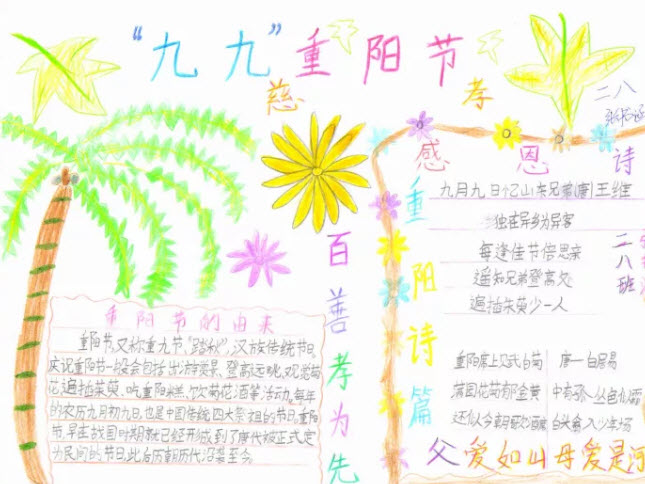 “九九”重阳节
慈 孝
感恩诗
二八
重阳诗篇
百善孝为先
重阳节的由来
重阳节,又称重九节,“踏秋”,汉族传统节日。
庆祝重阳节一般会包括出游赏景、登高远眺、观赏菊
花、遍插茱萸、吃重阳糕、饮菊花酒等活动。每年
的农历九月初九日,也是中国传统四大祭祖的节日。重阳
节,早在战国时期就已经形成,到了唐代被正式定
为民间的节日,此后历朝历代沿袭至今。
九月九日忆山东兄弟(唐)王维
独在异乡为异客
每逢佳节倍思亲
遥知兄弟登高处
遍插茱萸少一人
二八班
重阳席上 白菊 唐 白居易
满园花菊郁金黄 中有孤丛色似霜
还似今朝歌酒席 白头翁入少年场
父爱如山母爱是河